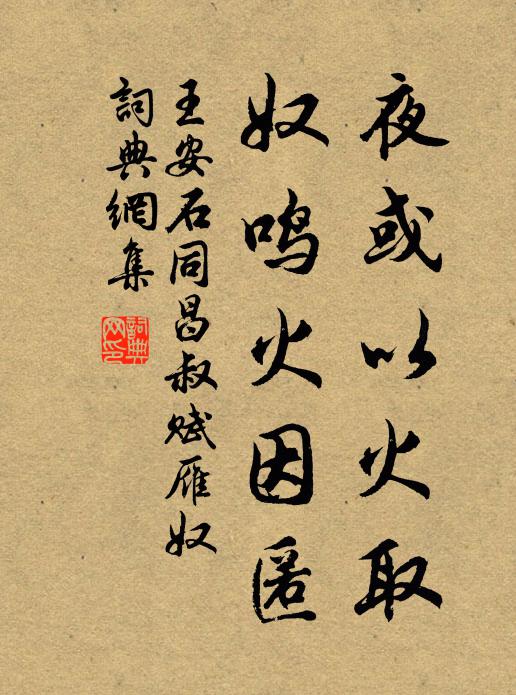 夜或以火取
奴鸣火因匿
王安石同昌叔赋雁奴
詞典網集
詞典网印